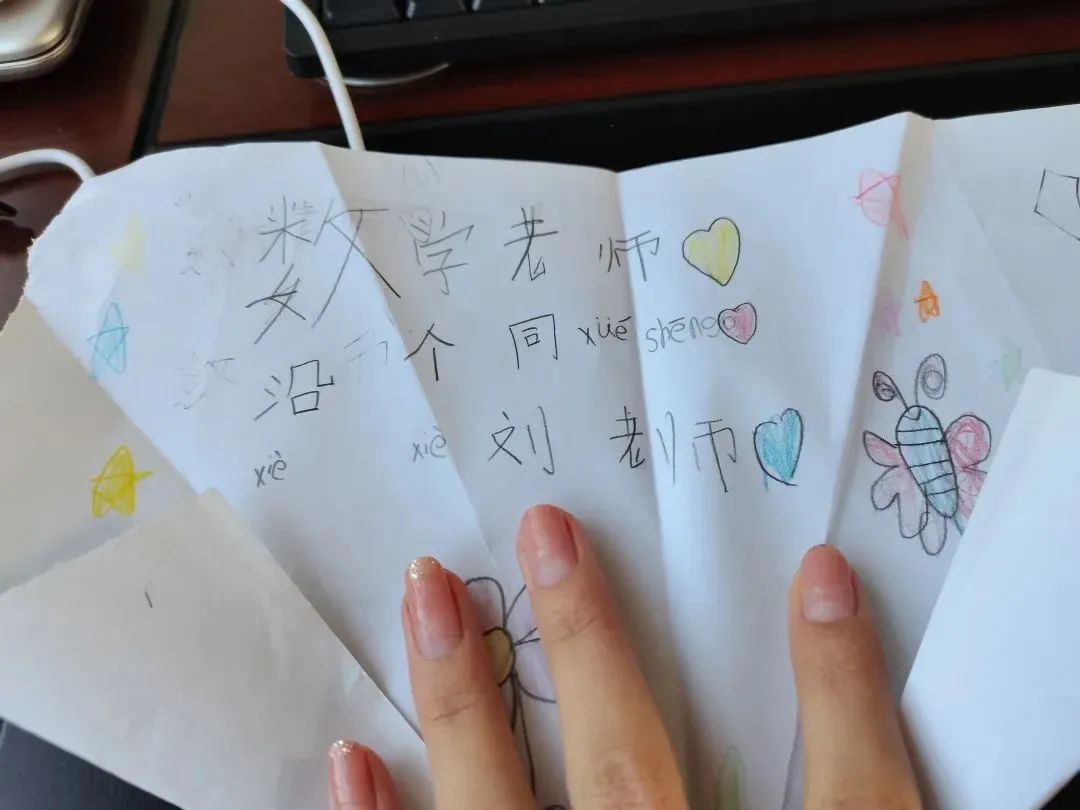 数学老师
沿个同xüé shēng
xiè xiè 刘老师